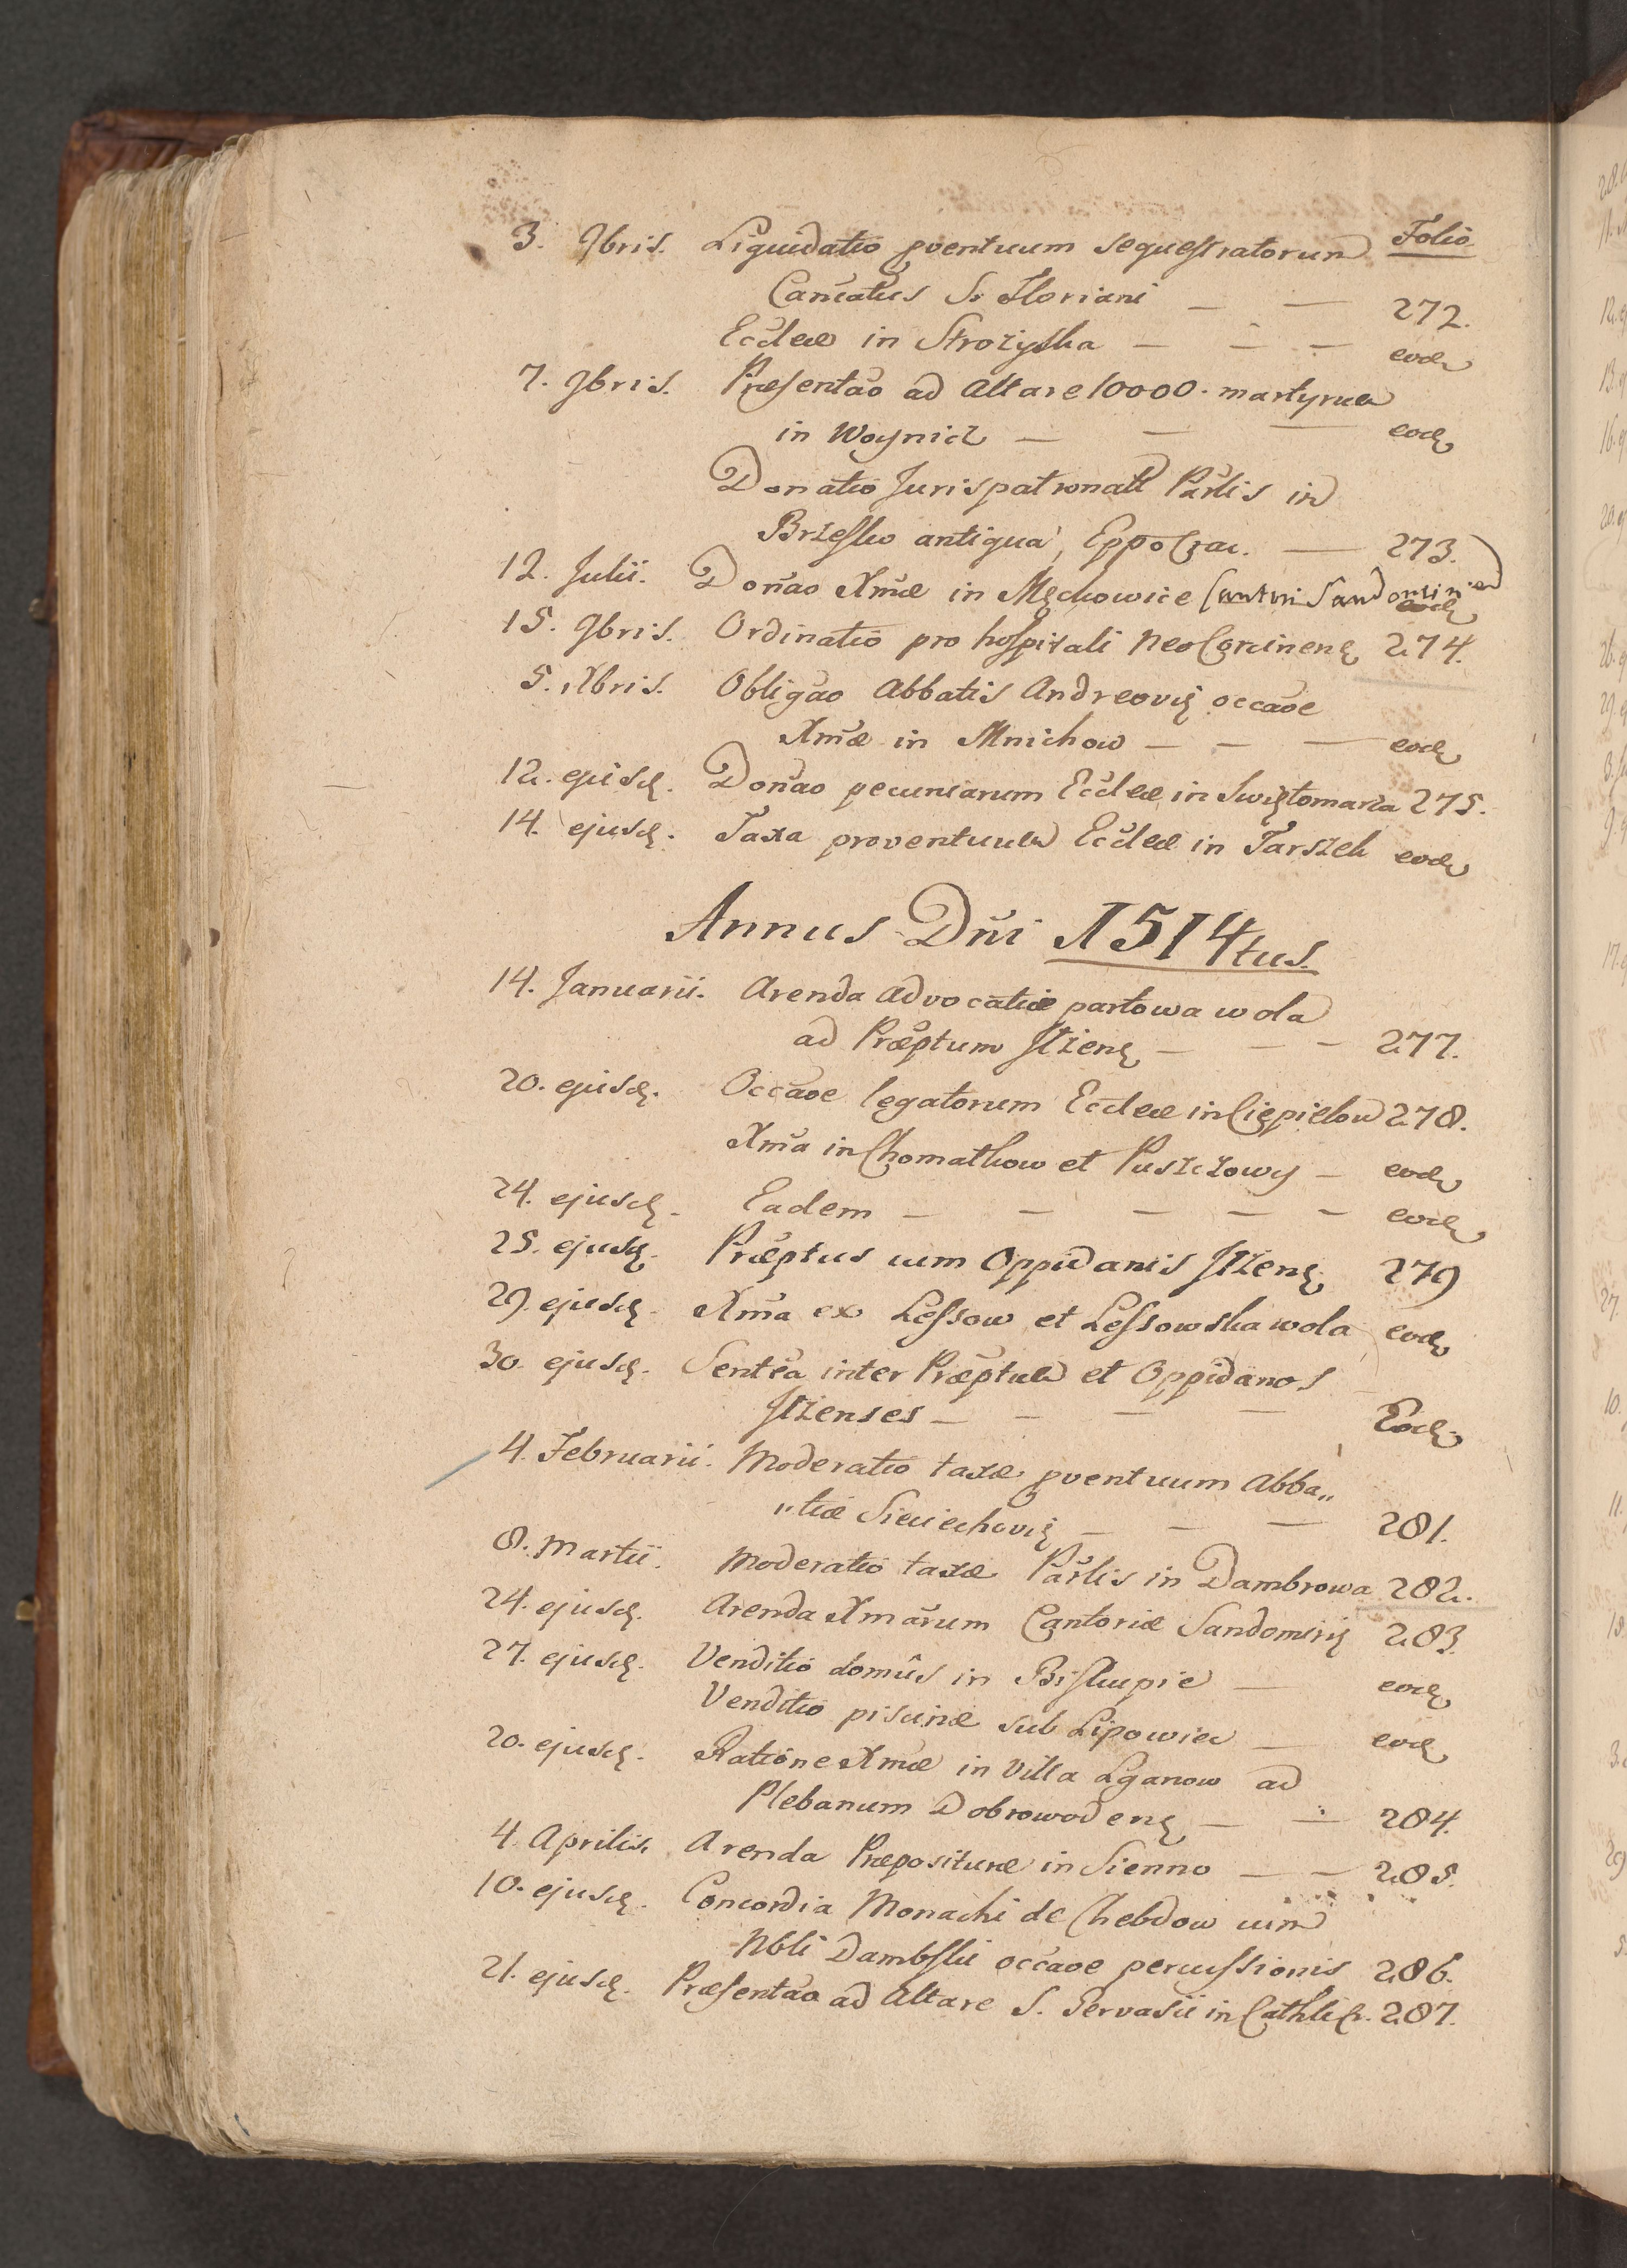 Folio
3. 9bris. Liquidatio pventuum sequestratorum
Canicatus S. Floriani — — 272.
Eccleae in Strozyska — — — eode
7. 9bris. Præsentao ad Altare 10000. martyrum
in Woynicz — — — eodę
Donatio Jurispatronatt Parlis in
Brzesko antiqua, Eppo Crac. — 273.
12. Julii. Donao Xmæ in Męchowice (antori Sandomirien) eodę
15. 9bris. Ordinatio pro hospitali NeoCorcinenę 274.
5. Xbris. Obligao Abbatis Andreovię occaoe
Xmæ in Mnichow — — — eodę
12. ejusdę. Donao pecuniarum Eccleæ in Swiętomarza 275.
14. ejusdę. Taxa proventuum Eccleæ in Tarszek eode
Annus Dni 1514tus.
14. Januarii. Arenda Advocatiæ partowa wola
ad Præptum Iłzenę — — — 277.
20. ejusdę. Occaoe legatorum Eccleæ in Ciępielow 278.
Xma in Chomathow et Puszczowy — eode
24. ejusdę. Eadem — — — — — eodę
25. ejusdę. Præptus cum Oppidanis Iłzenę. 279
29. ejusdę. Xma ex Lessow et Lessowska wola eodę
30. ejusdę. Sentea inter Præptum et Oppidanos
Iłzenses — — — — Eodę.
4. Februarii. Moderatio taxæ pventuum Abba„
„tiæ Sieciechovię — — — 281.
8. Martii. Moderatio taxæ Parlis in Dambrowa 282.
24. ejusdę. Arenda Xmarum Cantoriæ Sandomirię 283.
27. ejusdę. Venditio domûs in Biskupie — eodę
Venditio piscinæ sub Lipowiec — eodę
20. ejusdę. Ratione Xmæ in Villa Lganow ad
Plebanum Dobrowodenę — — 284.
4. Aprilis. Arenda Præposituræ in Sienno — — 285.
10. ejusdę. Concordia Monachi de Chebdow cum
Nbli Dambski occaoe percussionis 286.
21. ejusdę. Præsentao ad Altare S. Gervasii in Cathli Cr. 287.